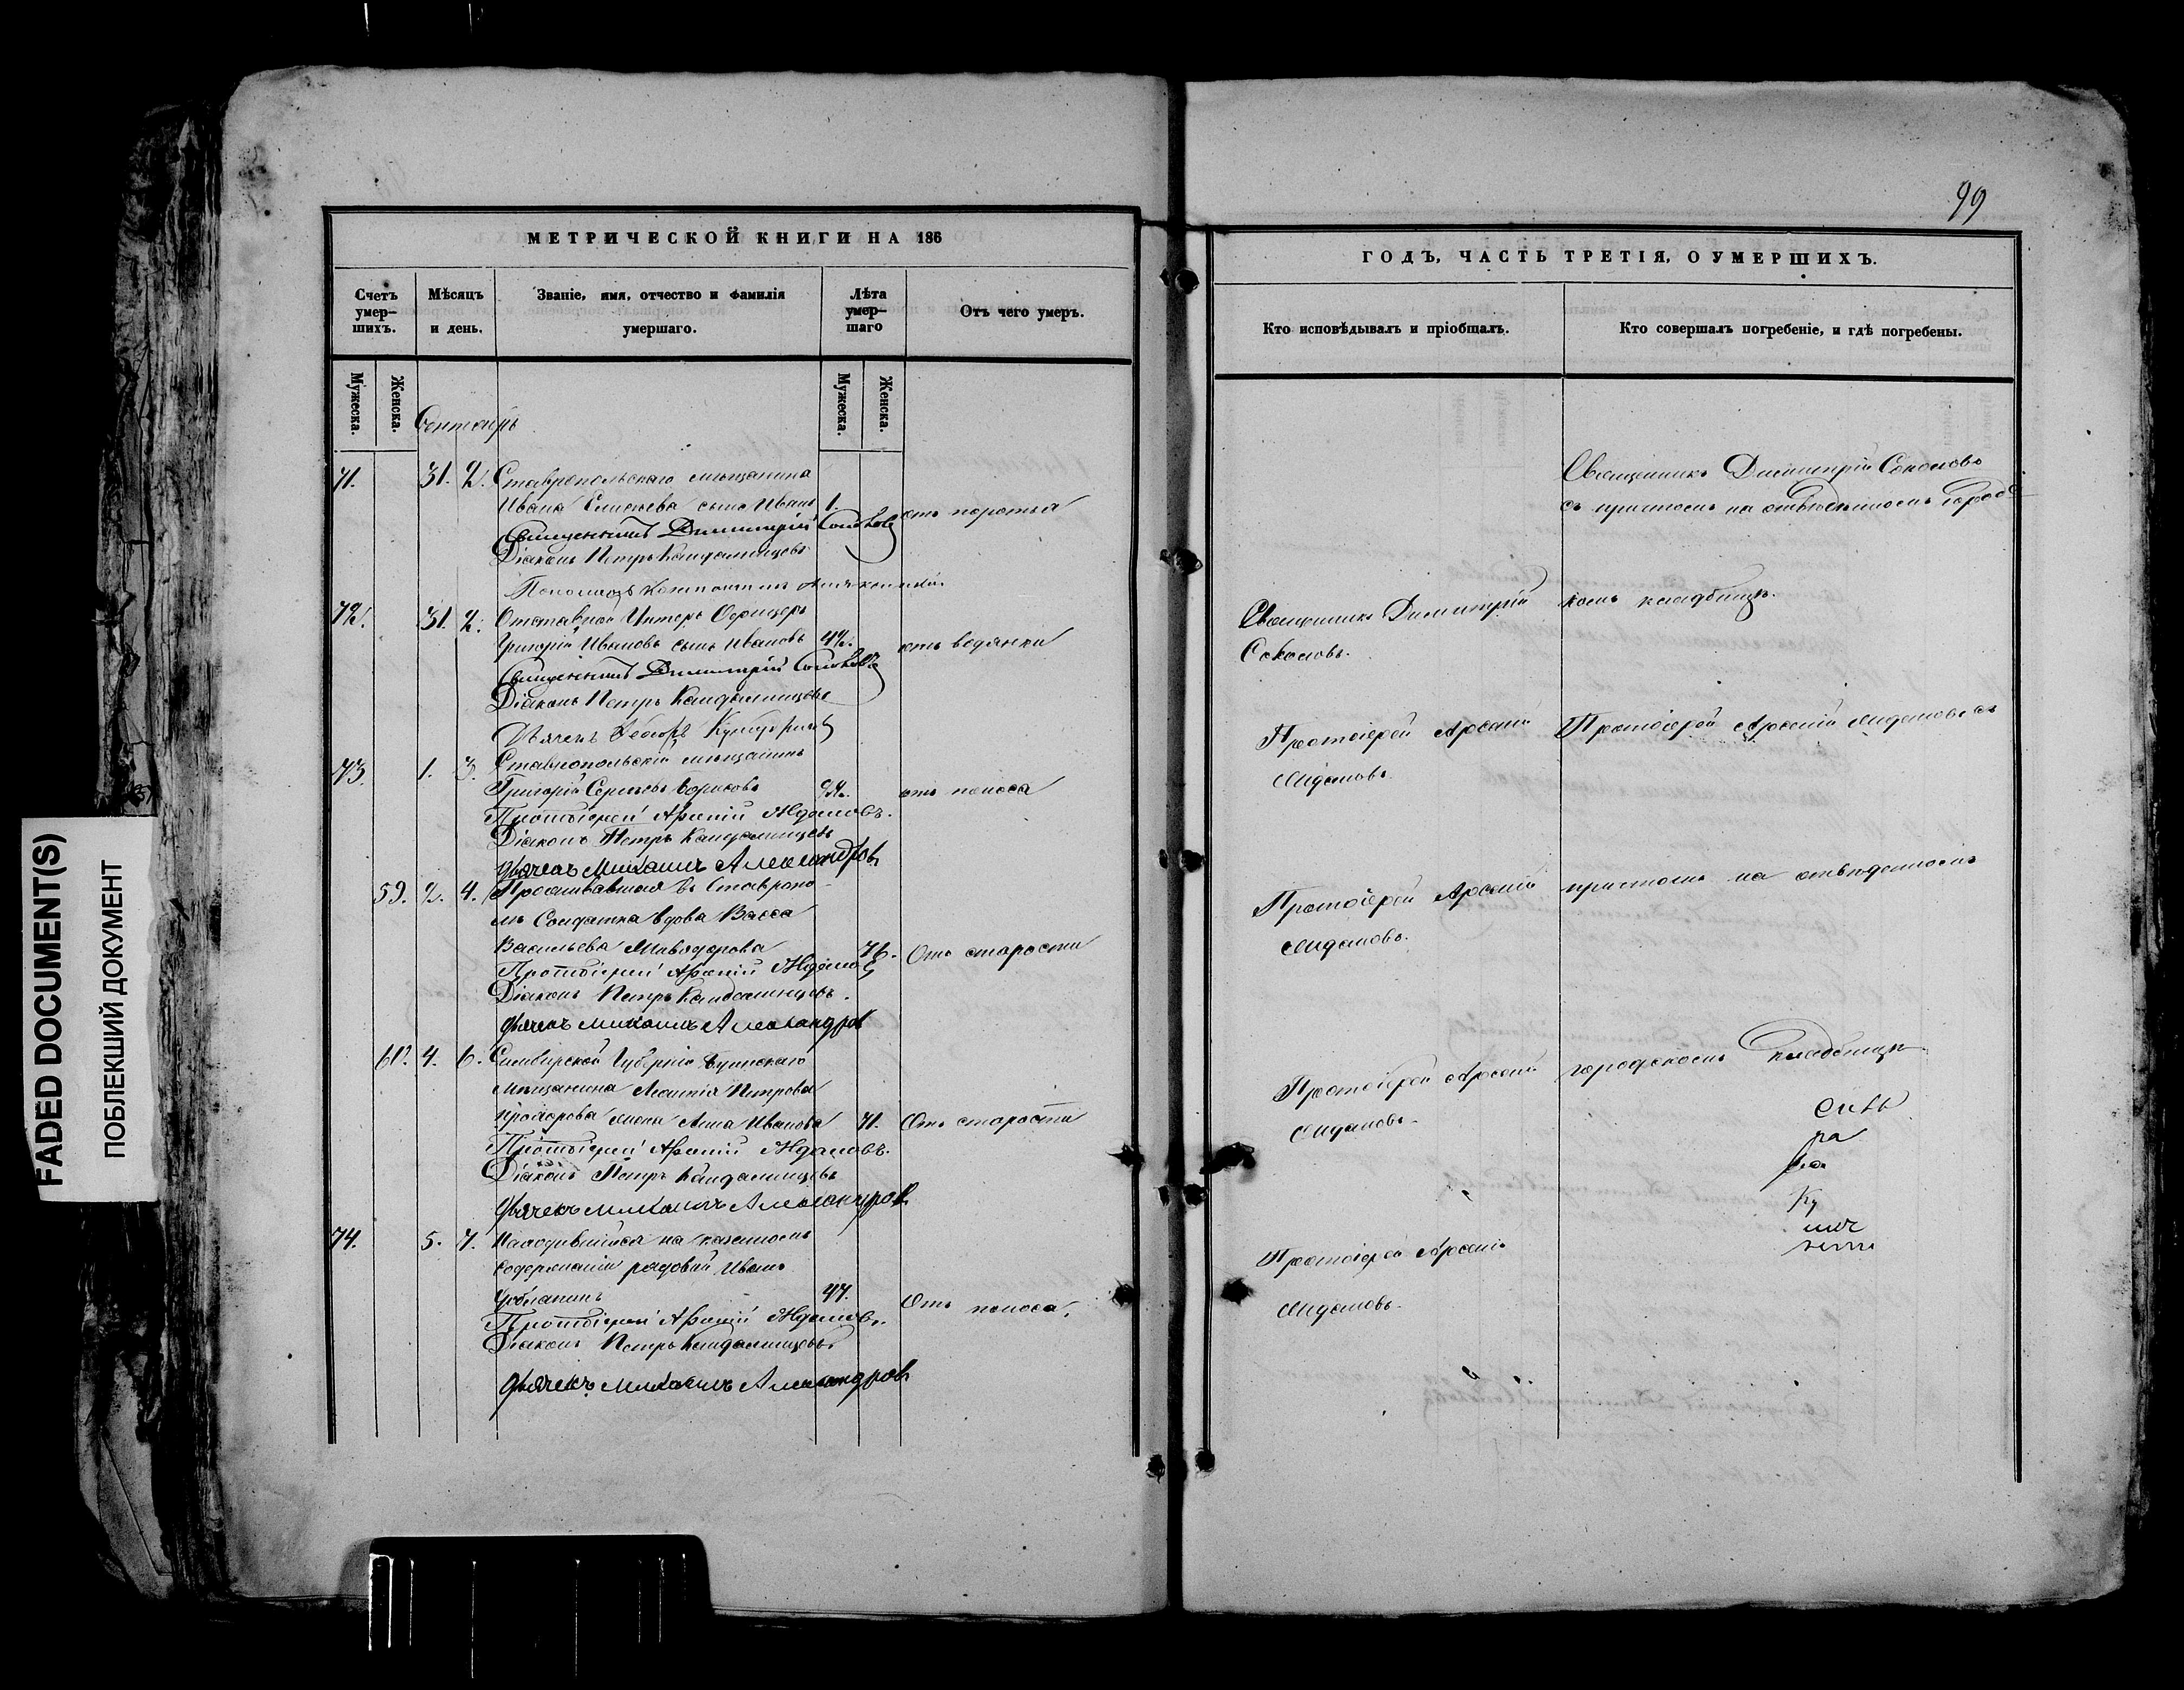 99
МЕТРИЧЕСКОЙ КНИГИ НА 186
Счетъ умер-шихъ.
Мѣсяцъ и день.
Званіе, имя, отчество и фамилія умершаго.
Лѣта умер-шаго
Отъ чего умеръ.
Мужеска.
Женска.
Мужеска.
Женска.
Сентябрь
71. 31. 2. Ставропольскаго мѣщанина
Ивана Елисеева сынъ Иванъ 1. отъ поноса
Священникъ Димитрій Соколовъ
Діаконъ Петръ Кандалинцевъ
Пономарь Константинъ
72. 31. 2. Отставной Унтеръ Офицеръ
Григорій Ивановъ сынъ Ивановъ 42. отъ водянки
Священникъ Димитрій Соколовъ
Діаконъ Петръ Кандалинцевъ
Дьячекъ
73. 1. 3. Ставропольскій мѣщанинъ
Григорій Сергѣевъ Борисовъ отъ поноса
Протоіерей Арсеній Ждановъ.
Діаконъ Петръ Кандалинцевъ
Дьячекъ Михаилъ Александровъ
59. 2. 4. Проживавшая въ Ставропо-
лѣ Солдатка вдова Васса
Васильева 76. Отъ старости
Протоіерей Арсеній Ждановъ
Діаконъ Петръ Кандалинцевъ.
Дьячекъ Михаилъ Александров
60. 4. 6. Симбирской Губерніи Буинскаго
Мѣщанина Леонтія Петрова
Прохорова жена Анна Иванова 71. Отъ старости
Протоіерей Арсеній Ждановъ.
Діаконъ Петръ Кандалинцевъ
Дьячекъ Михаилъ Александров
74. 5. 7. Находившійся на казенномъ
содержаніи рядовой Иванъ
47. Отъ поноса.
Протоіерей Арсеній Ждановъ.
Діаконъ Петръ Кандалинцевъ
Дьячекъ Михаилъ Александровъ
ГОДЪ, ЧАСТЬ ТРЕТІЯ, О УМЕРШИХЪ.
Кто исповѣдывалъ и пріобщалъ.
Кто совершалъ погребеніе, и гдѣ погребены.
Священникъ Димитрій Соколовъ
съ причтомъ на отведенномъ город-
Священникъ Димитрій скомъ кладбищѣ.
Соколовъ.
Протоіерей Арсеній Протоіерей Арсеній Ждановъ съ
Ждановъ.
Протоіерей Арсеній причтомъ на отведенномъ
Ждановъ.
Протоіерей Арсеній городскомъ кладбищѣ
Ждановъ.
ра
Ку
Протоіерей Арсеній
Ждановъ.
FADED DOCUMENT(S)
ПОБЛЕКШИЙ ДОКУМЕНТ